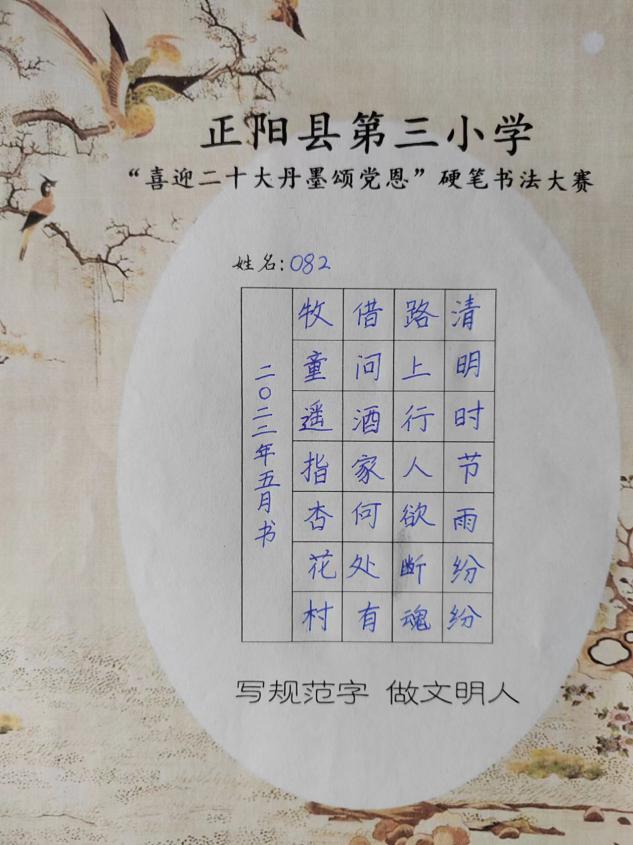 正阳县第三小学
“喜迎二十大丹墨颂党恩”硬笔书法大赛
姓名:082
清明时节雨纷纷
路上行人欲断魂
借问酒家何处有
牧童遥指杏花村
二〇二二年五月书
写规范字 做文明人